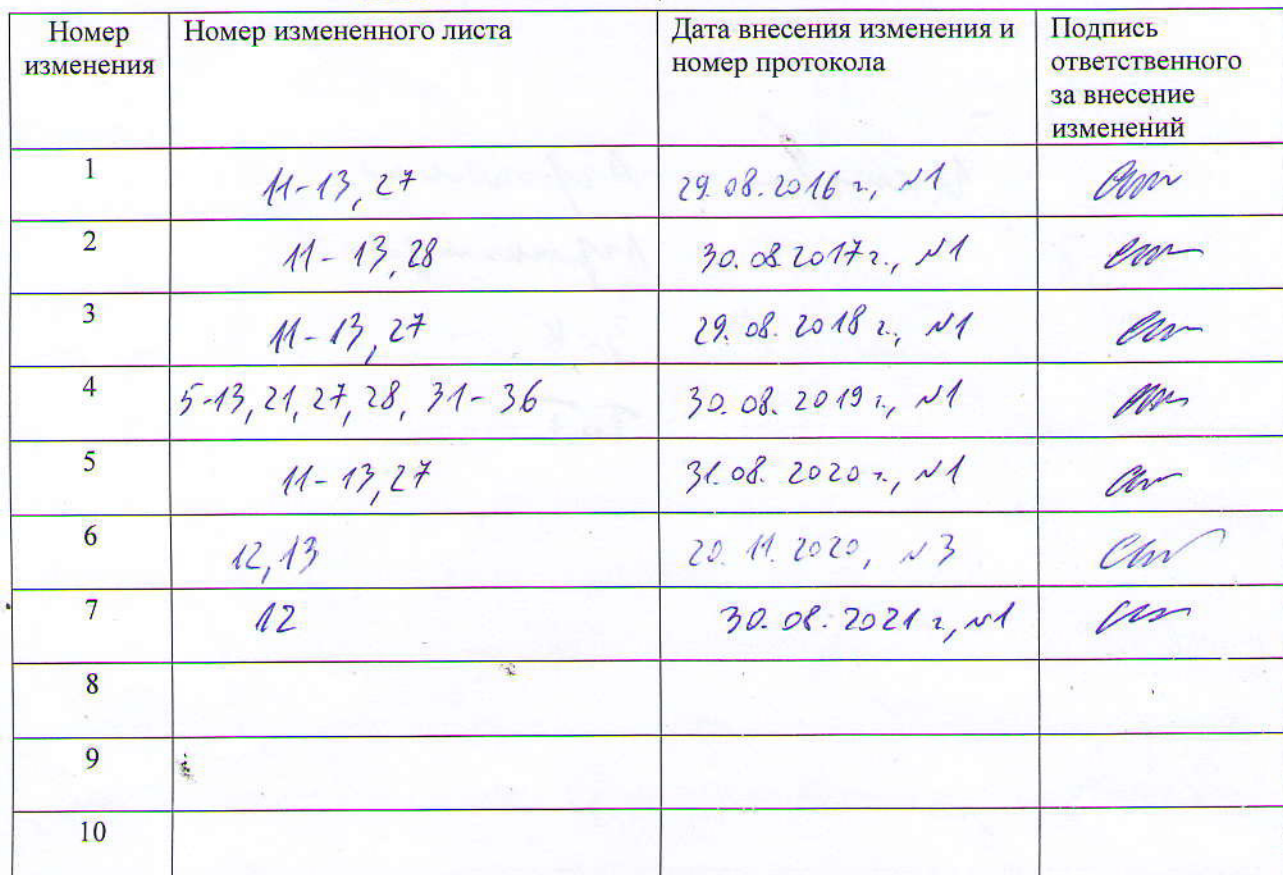 Номер изменения Номер измененного листа Дата внесения изменения и номер протокола Подпись ответственного за внесение изменений
1 11-13, 27 29.08.2016 г., №1
2 11-13, 28 30.08.2017 г., №1
3 11-13, 27 29.08.2018 г., №1
4 5-13, 21, 27, 28, 31-36 30.08.2019 г., №1
5 11-13, 27 31.08.2020 г., №1
6 12, 13 20.11.2020, №3
7 12 30.08.2021 г., №1
8
9
10